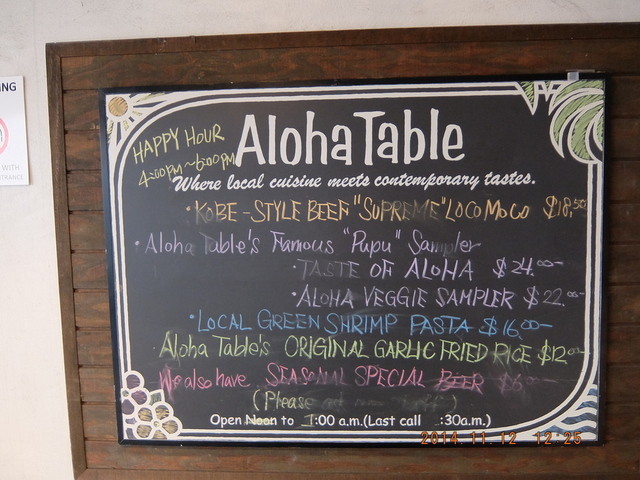 NG
WITH
ENTRANCE
HAPPY HOUR
4:00pm ~6:00pm
Aloha Table
Where local cuisine meets contemporary tastes.
• KOBE-STYLE BEEF "SUPREME" LOCO MOCO $18.50
• Aloha Table's Famous "Pupu" Sampler
• TASTE OF ALOHA $24.00-
• ALOHA VEGGIE SAMPLER $22.00-
• LOCAL GREEN SHRIMP PASTA $16.00-
Aloha Table's ORIGINAL GARLIC FRIED RICE $12.00
We also have SEASONAL SPECIAL BEER $6.00-
(Please
Open Noon to 1:00 a.m.(Last call :30a.m.)
2014.11.12 12:25